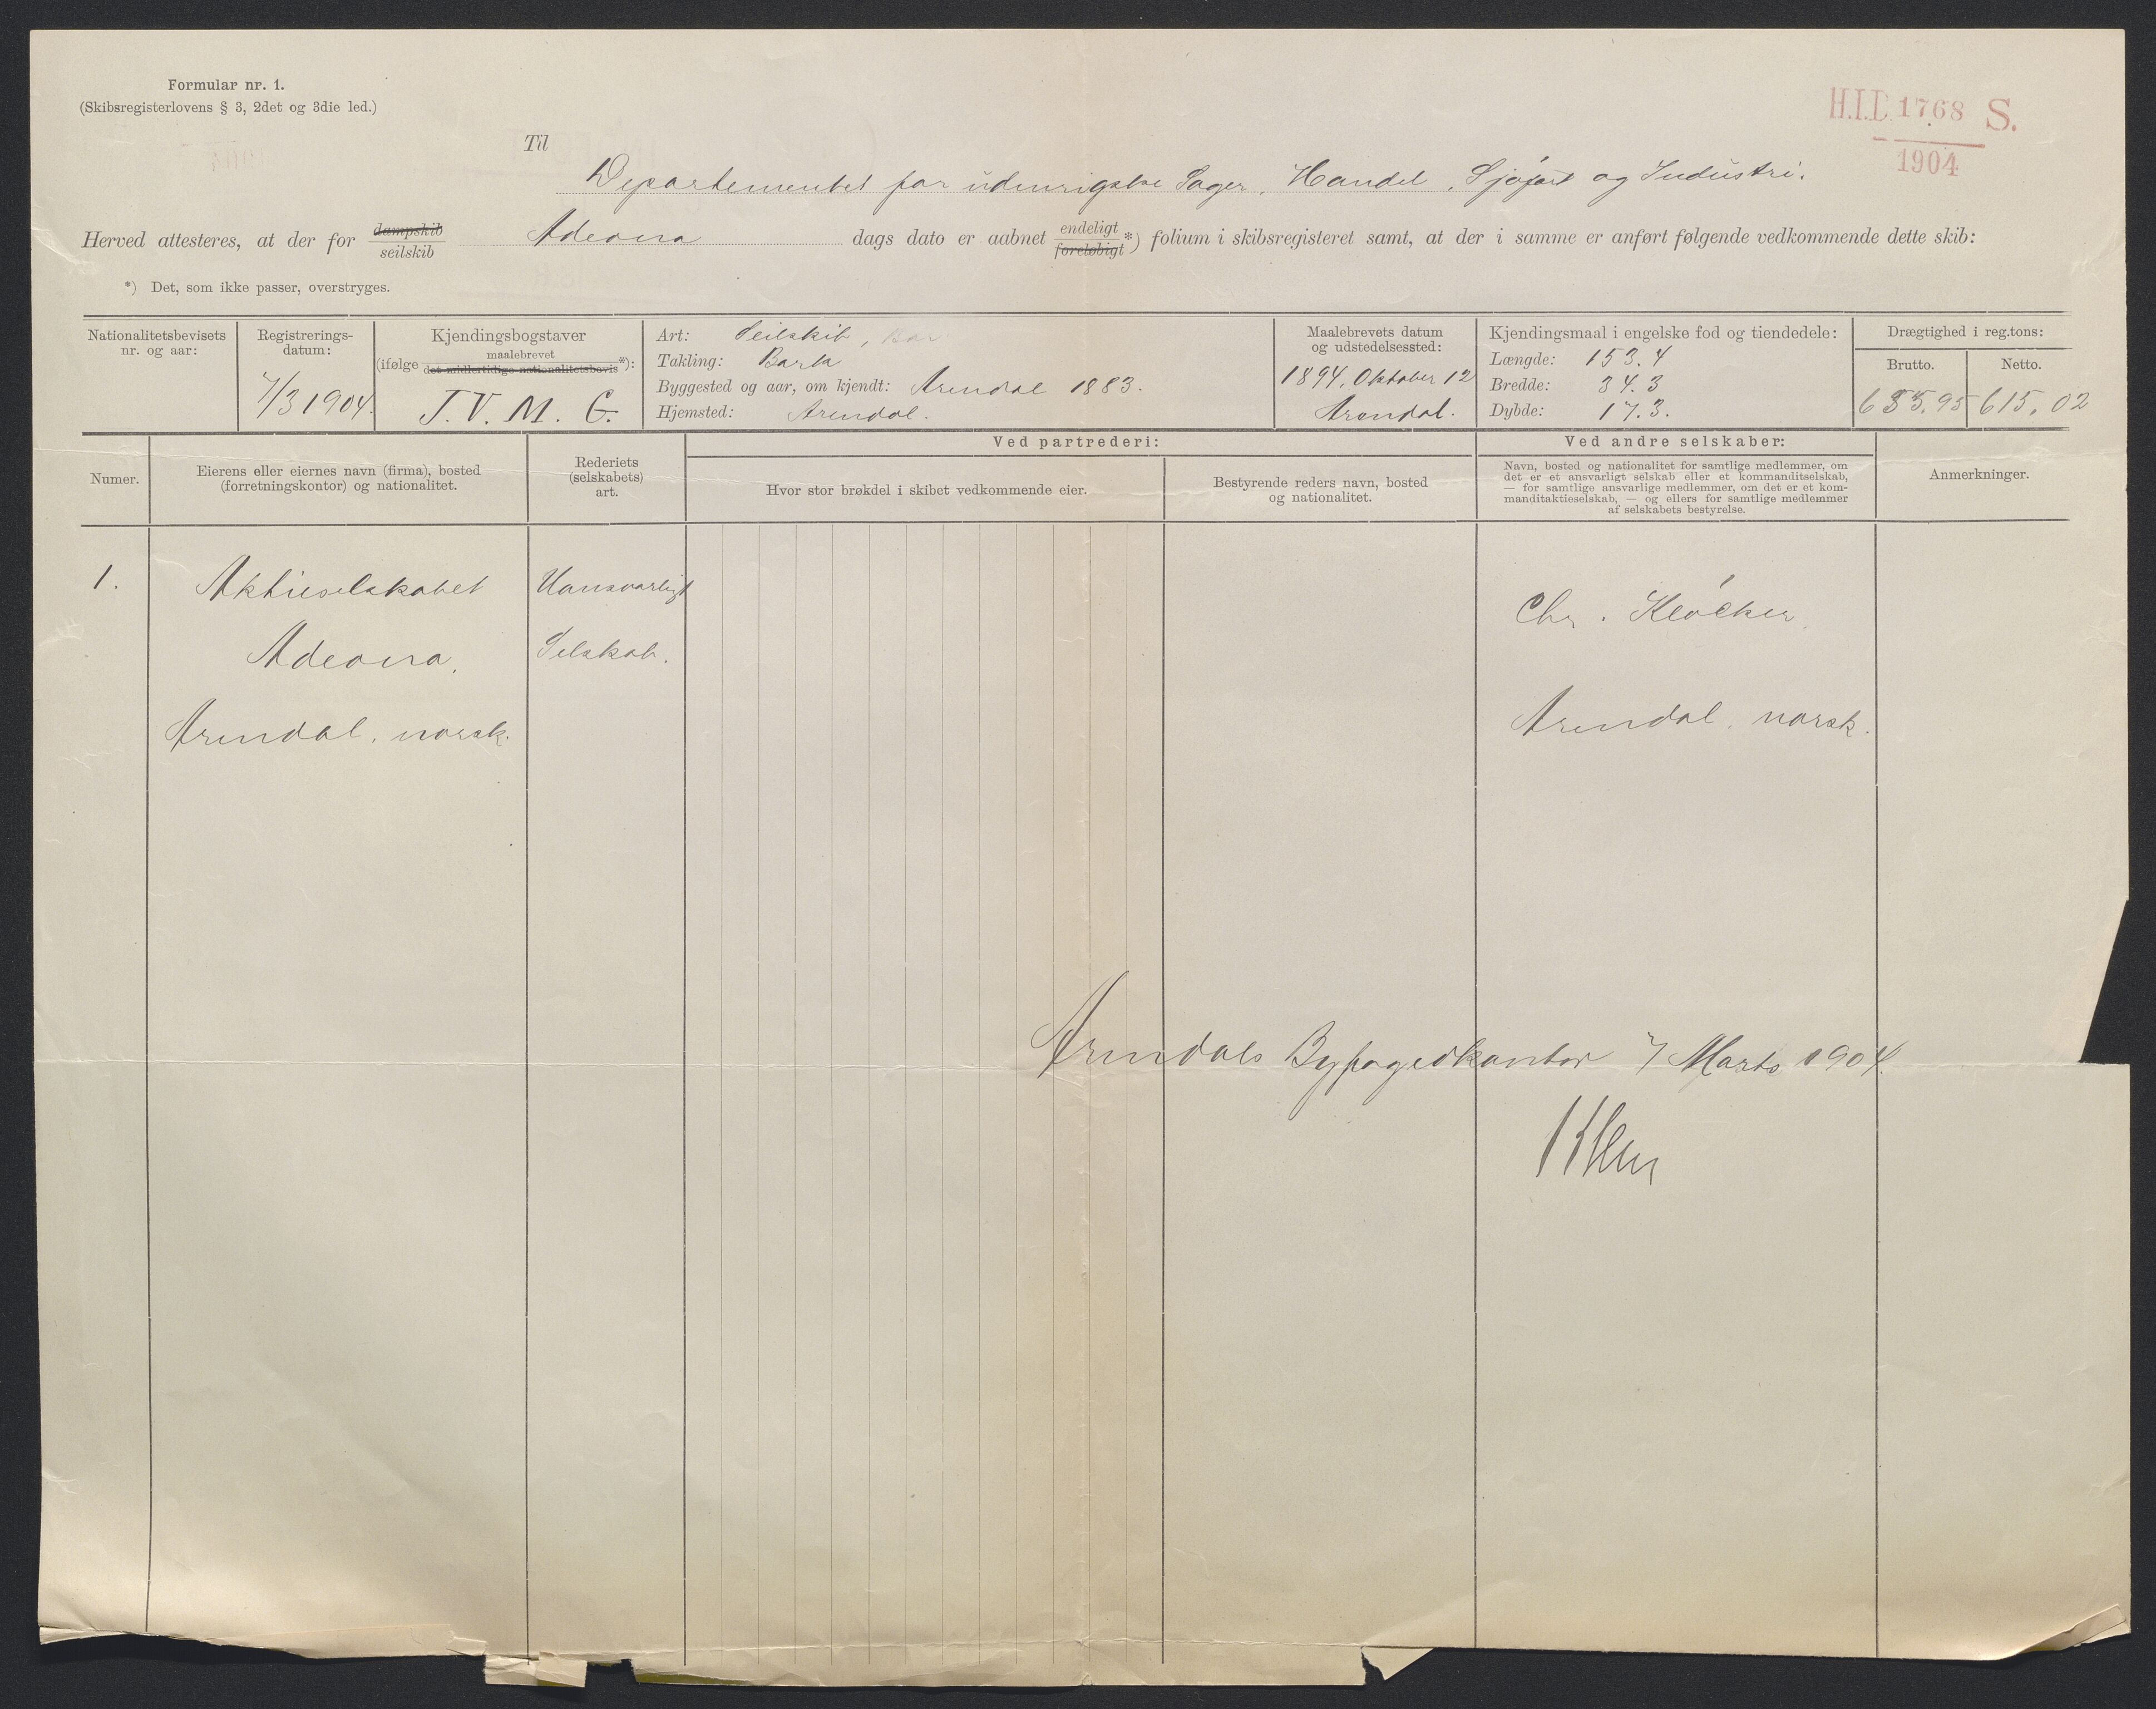 Formular nr. 1.
(Skibsregisterlovens § 3, 2det og 3die led.)
H.I.D. 1768 S.
1904
Til
Departementet for udenrigske Sager, Handel, Sjøfart og Industri.
Herved attesteres, at der for dampskib seilskib Adeona dags dato er aabnet endeligt foreløbigt *) folium i skibsregisteret samt, at der i samme er anført følgende vedkommende dette skib:
*) Det, som ikke passer, overstryges.
Nationalitetsbevisets
nr. og aar:
Registrerings-
datum:
7/3 1904.
Kjendingsbogstaver
(ifølge maalebrevet det midlertidige nationalitetsbevis *):
J. V. M. G.
Art: Seilskib,
Takling: Bark
Byggested og aar, om kjendt: Arendal 1883.
Hjemsted: Arendal.
Maalebrevets datum
og udstedelsessted:
1894, Oktober 12
Arendal.
Kjendingsmaal i engelske fod og tiendedele:
Længde: 153.4
Bredde: 34.3
Dybde: 17.3.
Drægtighed i reg.tons:
Brutto.
Netto.
615,02
Numer.
Eierens eller eiernes navn (firma), bosted
(forretningskontor) og nationalitet.
Rederiets
(selskabets)
art.
Ved partrederi:
Hvor stor brøkdel i skibet vedkommende eier.
Bestyrende reders navn, bosted
og nationalitet.
Ved andre selskaber:
Navn, bosted og nationalitet for samtlige medlemmer, om
det er et ansvarligt selskab eller et kommanditselskab,
— for samtlige ansvarlige medlemmer, om det er et kom-
manditaktieselskab, — og ellers for samtlige medlemmer
af selskabets bestyrelse.
Anmerkninger.
1.
Aktieselskabet
Adeona,
Arendal, norsk.
Uansvarligt
Selskab.
Chr. Klöcker,
Arendal, norsk.
Arendals Byfogedkontor 7 Marts 1904.